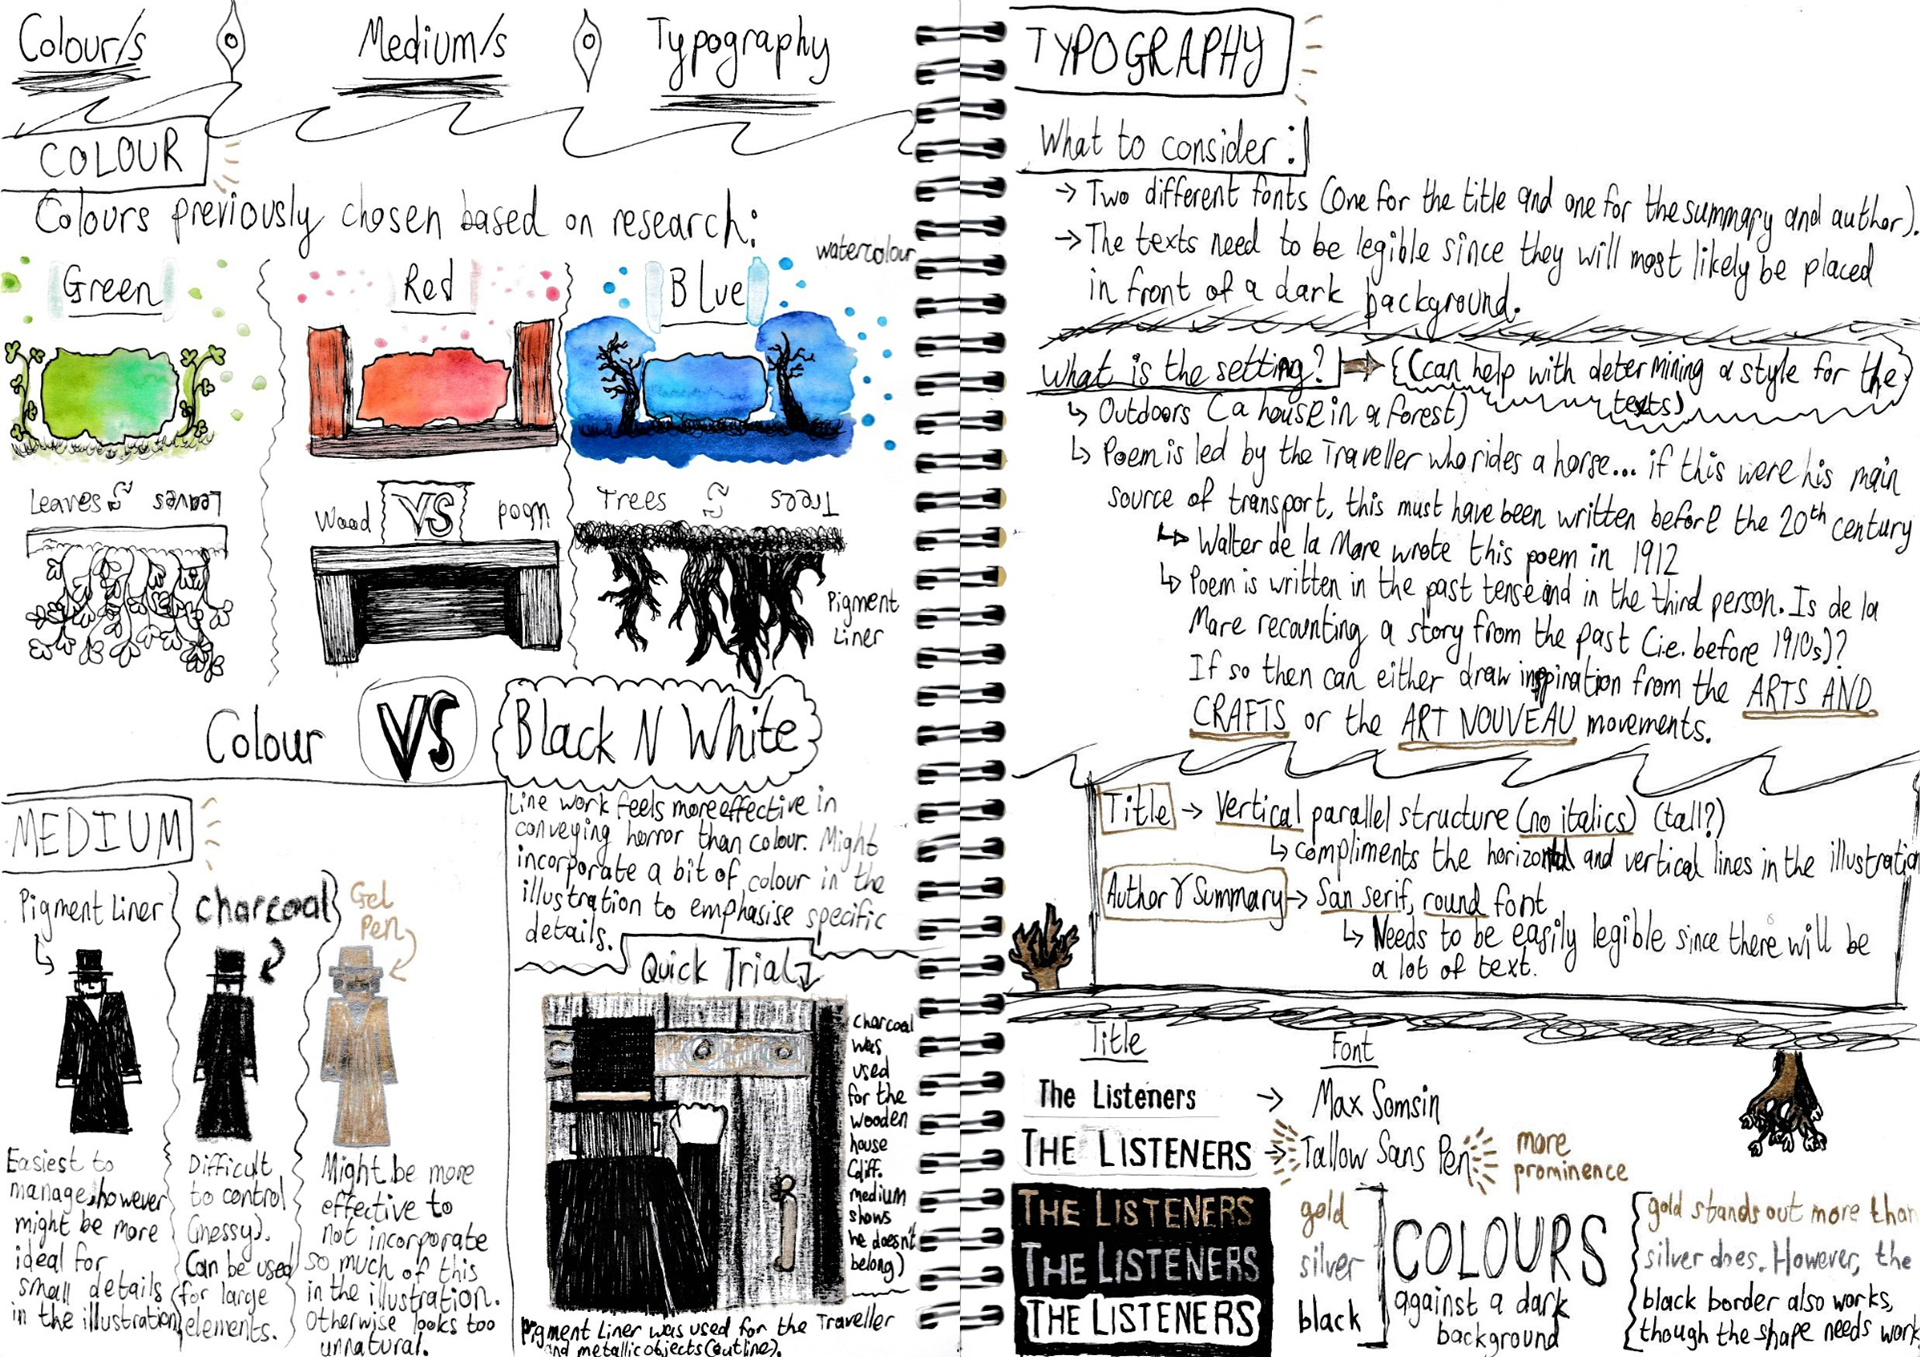 Colour/s
Medium/s
Typography
COLOUR
Colours previously chosen based on research:
watercolour
Green
Red
Blue
Leaves
Leaves
Wood
VS
poem
Trees
Trees
Pigment
Liner
Colour
VS
Black N White
Line work feels more effective in
conveying horror than colour. Might
incorporate a bit of colour in the
illustration to emphasise specific
details.
MEDIUM
Pigment Liner
charcoal
Gel
Pen
Easiest to
manage, however
might be more
ideal for
small details
in the illustration
Difficult
to control
(messy).
Can be used
for large
elements.
Might be more
effective to
not incorporate
so much of this
in the illustration.
Otherwise looks too
unnatural.
Quick Trial
charcoal
was
used
for the
wooden
house
(diff.
medium
shows
he doesn't
belong)
Pigment Liner was used for the Traveller
and metallic objects (outline).
TYPOGRAPHY
What to consider:
→ Two different fonts (One for the title and one for the summary and author).
→ The texts need to be legible since they will most likely be placed
in front of a dark background.
What is the setting? → (Can help with determining a style for the
texts)
↳ Outdoors (a house in a forest)
↳ Poem is led by the Traveller who rides a horse... if this were his main
source of transport, this must have been written before the 20th century
↳ Walter de la Mare wrote this poem in 1912
↳ Poem is written in the past tense and in the third person. Is de la
Mare recounting a story from the past (i.e. before 1910s)?
If so then can either draw inspiration from the ARTS AND
CRAFTS or the ART NOUVEAU movements.
Title → Vertical parallel structure (no italics) (tall?)
↳ compliments the horizontal and vertical lines in the illustration
Author & Summary → San serif, round font
↳ Needs to be easily legible since there will be
a lot of text.
Title
Font
The Listeners → Max Somsin
THE LISTENERS → Tallow Sans Pen
more
prominence
THE LISTENERS
gold
THE LISTENERS
silver
THE LISTENERS
black
COLOURS
against a dark
background
gold stands out more than
silver does. However, the
black border also works,
though the shape needs work